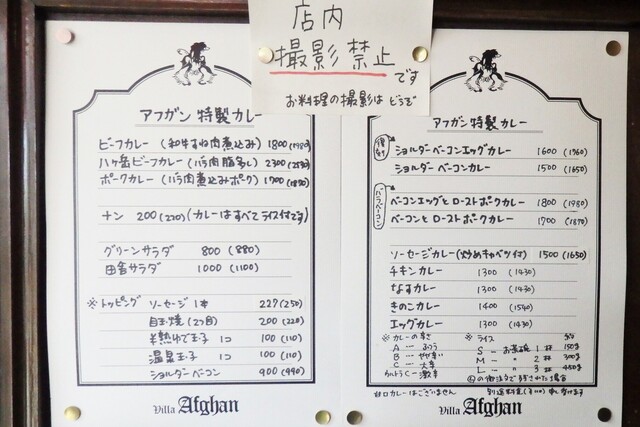 店内
撮影禁止
です
お料理の撮影は どうぞ
アフガン 特製カレー
ビーフカレー (和牛すね肉煮込み) 1800 (1980)
八ヶ岳ビーフカレー (バラ肉脂多し) 2300 (2530)
ポークカレー (バラ肉煮込みポーク) 1700 (1870)
ナン 200 (220) (カレーはすべてライス付です)
グリーンサラダ 800 (880)
田舎サラダ 1000 (1100)
※トッピング ソーセージ 1本 227 (250)
目玉焼 (2つ目) 200 (220)
半熟ゆで玉子 1コ 100 (110)
温泉玉子 1コ 100 (110)
ショルダーベーコン 900 (990)
Villa Afghan
アフガン 特製カレー
ショルダーベーコンエッグカレー 1600 (1760)
ショルダーベーコンカレー 1500 (1650)
バラベーコン
ベーコンエッグとローストポークカレー 1800 (1980)
ベーコンとローストポークカレー 1700 (1870)
ソーセージカレー (炒めキャベツ付) 1500 (1650)
チキンカレー 1300 (1430)
なすカレー 1300 (1430)
きのこカレー 1400 (1540)
エッグカレー 1300 (1430)
※ カレーの辛さ
A … ふつう
B … やや辛い
C … 大辛
ウルトラC … 激辛
※ ライス
S … お茶碗 1杯 150g
M … 〃 2杯 300g
L … 〃 3杯 450g
甘口カレーはございません
Villa Afghan